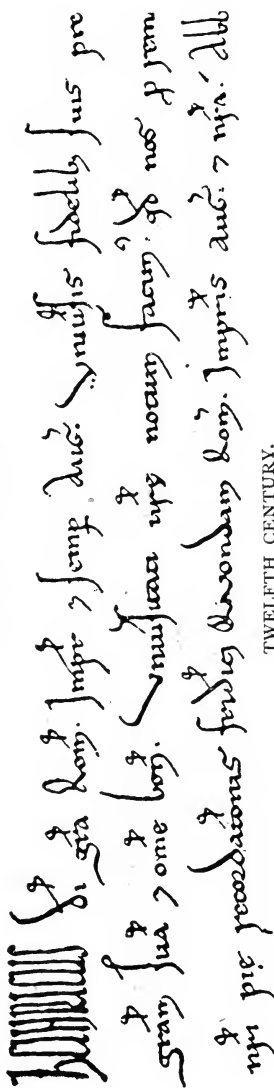 Heinricus di gra Rom. Impr ⁊ semp Aug. Vniuusis fidelib suis pre
gram sua ⁊ ome bon. Vniuusitati vre notum facim. qd nos
nri pie recordationis fridici quondam Rom. Impris aug. ⁊ nra. Abb
TWELFTH CENTURY.